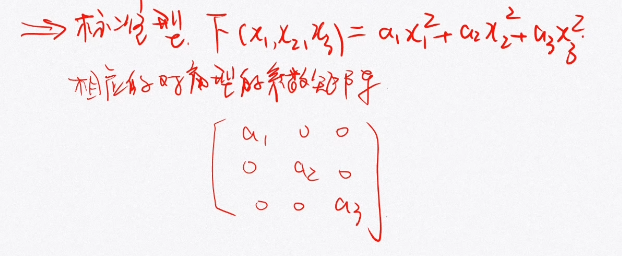 ⇒ 标准型 f(x₁,x₂,x₃) = a₁x₁² + a₂x₂² + a₃x₃²
相应的对角型的系数矩阵
a₁ 0 0
0 a₂ 0
0 0 a₃